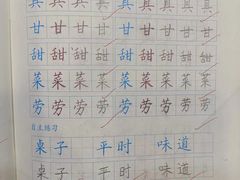 具 具 具 具 具 具 具 具
甘 甘 甘 甘 甘 甘 甘 甘
甜 甜 甜 甜 甜 甜 甜 甜
菜 菜 菜 菜 菜 菜 菜 菜
劳 劳 劳 劳 劳 劳 劳 劳
自主练习
桌子 平时 味道
桌子 平时 味道